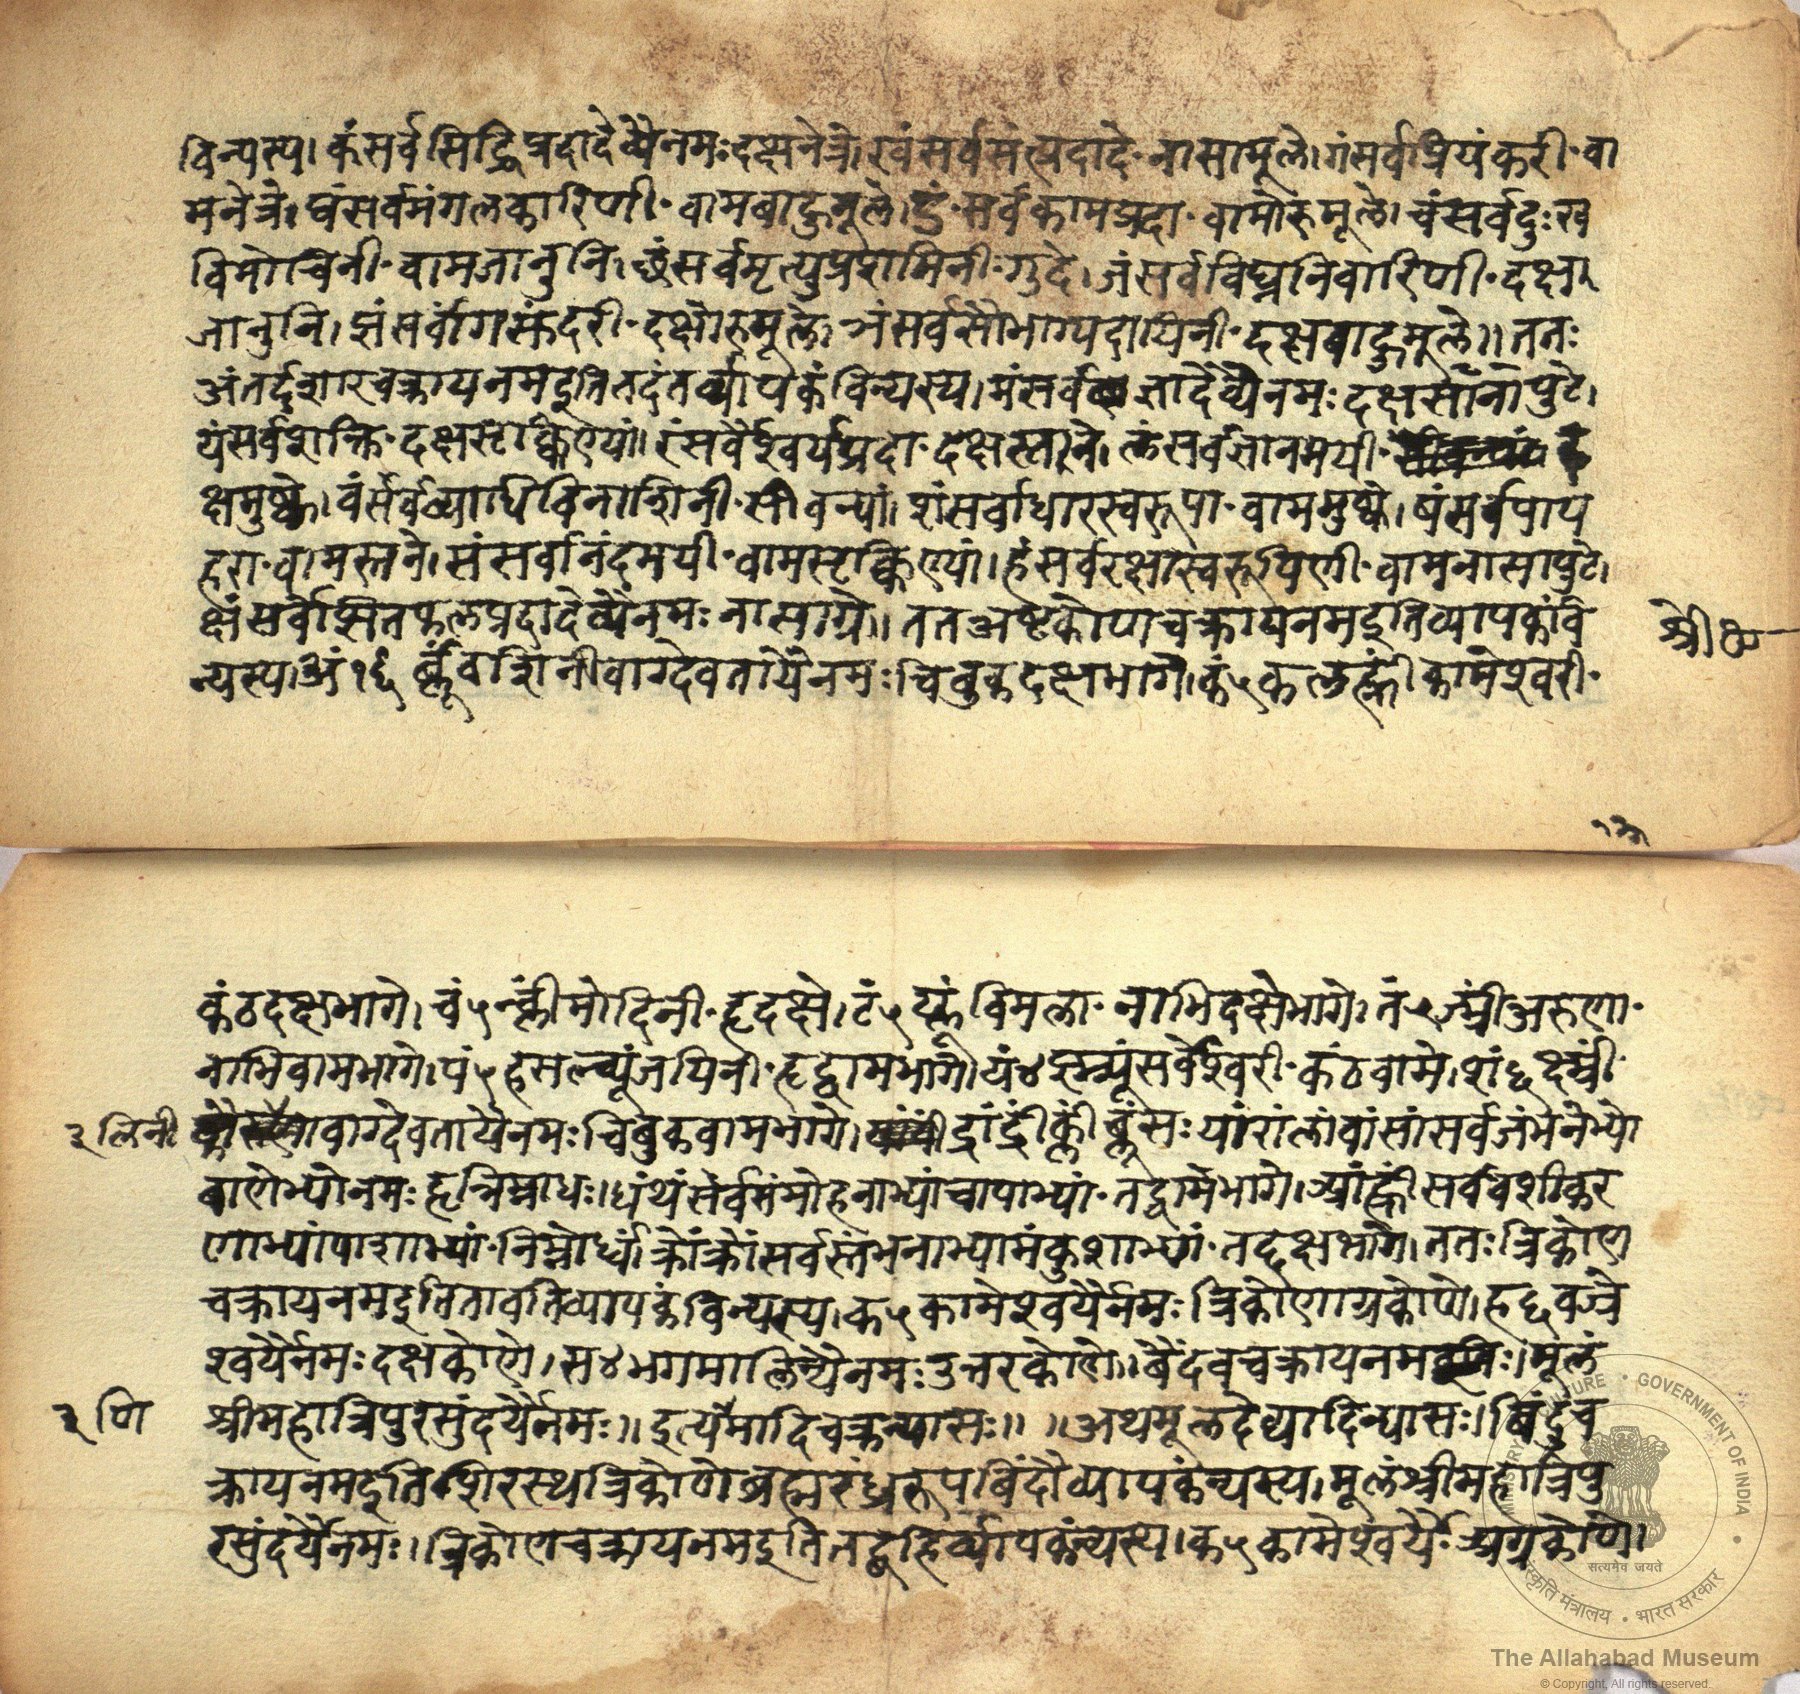 विन्यस्य। कंसर्वसिद्धिप्रदादेव्यैनमः दक्षनेत्रे। खंसर्वसंत्प्रदादे॰ नासामूले। गंसर्वप्रियंकरी॰ वा
मनेत्रे। घंसर्वमंगलकारिणी॰ वामबाहुमूले। ङं॰ सर्वकामप्रदा॰ वामोरुमूले। चंसर्वदुःख
विमोचिनी॰ वामजानुनि। छंसर्वमृत्युप्रशमिनी॰ गुदे। जंसर्वविघ्ननिवारिणी॰ दक्ष
जानुनि। झंसर्वांगसुंदरी॰ दक्षोरुमूले। ञंसर्वसौभाग्यदायिनी॰ दक्षबाहुमूले॥ ततः
अंतर्दशारचक्रायनमइतितदंतर्व्यापकंविन्यस्य। मंसर्वज्ञादेव्यैनमः दक्षसानापुटे।
यंसर्वशक्ति॰ दक्षसृक्किण्यां। रंसर्वैश्वर्यप्रदा॰ दक्षस्तने। लंसर्वज्ञानमयी॰ द
क्षमुष्के। वंसर्वव्याधिविनाशिनी॰ सीवन्यां। शंसर्वाधारस्वरूपा॰ वाममुष्के। षंसर्वपाप
हरा॰ वामस्तने। संसर्वानंदमयी॰ वामसृक्किण्यां। हंसर्वरक्षास्वरूपिणी॰ वामनासापुटे।
क्षंसर्वेप्सितफलप्रदादेव्यैनमः नासाग्रे॥ ततअष्टकोणचक्रायनमइतिव्यापकंवि
न्यस्य। अं१६ र्ब्लूंवशिनीवाग्देवतायैनमः चिबुकदक्षभागे। कं५कलह्रींकामेश्वरी॰
श्री
कंठदक्षभागे। चं५न्व्लींमोदिनी॰ हृदक्षे। टं५य्लूंविमला॰ नाभिदक्षेभागे। तं५ज्म्रींअरुणा॰
नाभिवामभागे। पं५हसल्व्यूंजयिनी॰ हृद्वामभागे। यं४झ्म्र्यूंसर्वेश्वरी॰ कंठवामे। शं६क्ष्म्रीं
३लिनी
वाग्देवतायैनमः चिबुकवामभागे। द्रांद्रींक्लींब्लूंसः यांरांलांवांसांसर्वजंभनेभ्यो
बाणेभ्योनमः हृन्निम्नाधः। धंथंसर्वसंमोहनाभ्यांचापाभ्यां॰ तद्वामेभागे। आंह्रींसर्ववशीकर
णाभ्यांपाशाभ्यां॰ निम्नोर्ध्वं। क्रोंक्रोंसर्वस्तंभनाभ्यामंकुशाभ्यां॰ तद्दक्षभागे। ततः त्रिकोण
चक्रायनमइतितावतिव्यापकंविन्यस्य। क५कामेश्वर्यैर्नमः त्रिकोणाग्रकोणे। ह६वज्रे
श्वर्यैर्नमः दक्षकोणे। स४भगमालिन्यैनमः उत्तरकोणे॥ बैंदवचक्रायनमइतिः। मूलं
३णि
श्रीमहात्रिपुरसुंदर्यैर्नमः॥ इत्येमादिचक्रन्यासः॥ ॥अथमूलदेव्यादिन्यासः। बिंदुच
क्रायनमइतिशिरस्थत्रिकोणेब्रह्मरंध्ररूपबिंदौव्यापकंन्यस्य। मूलंश्रीमहात्रिपु
रसुंदर्यैनमः। त्रिकोणचक्रायनमइतितद्बहिर्व्यापकंन्यस्य। क५कामेश्वर्यै॰ अग्रकोणे।
MINISTRY OF CULTURE • GOVERNMENT OF INDIA •
सत्यमेव जयते
संस्कृति मंत्रालय • भारत सरकार
The Allahabad Museum
© Copyright, All rights reserved.